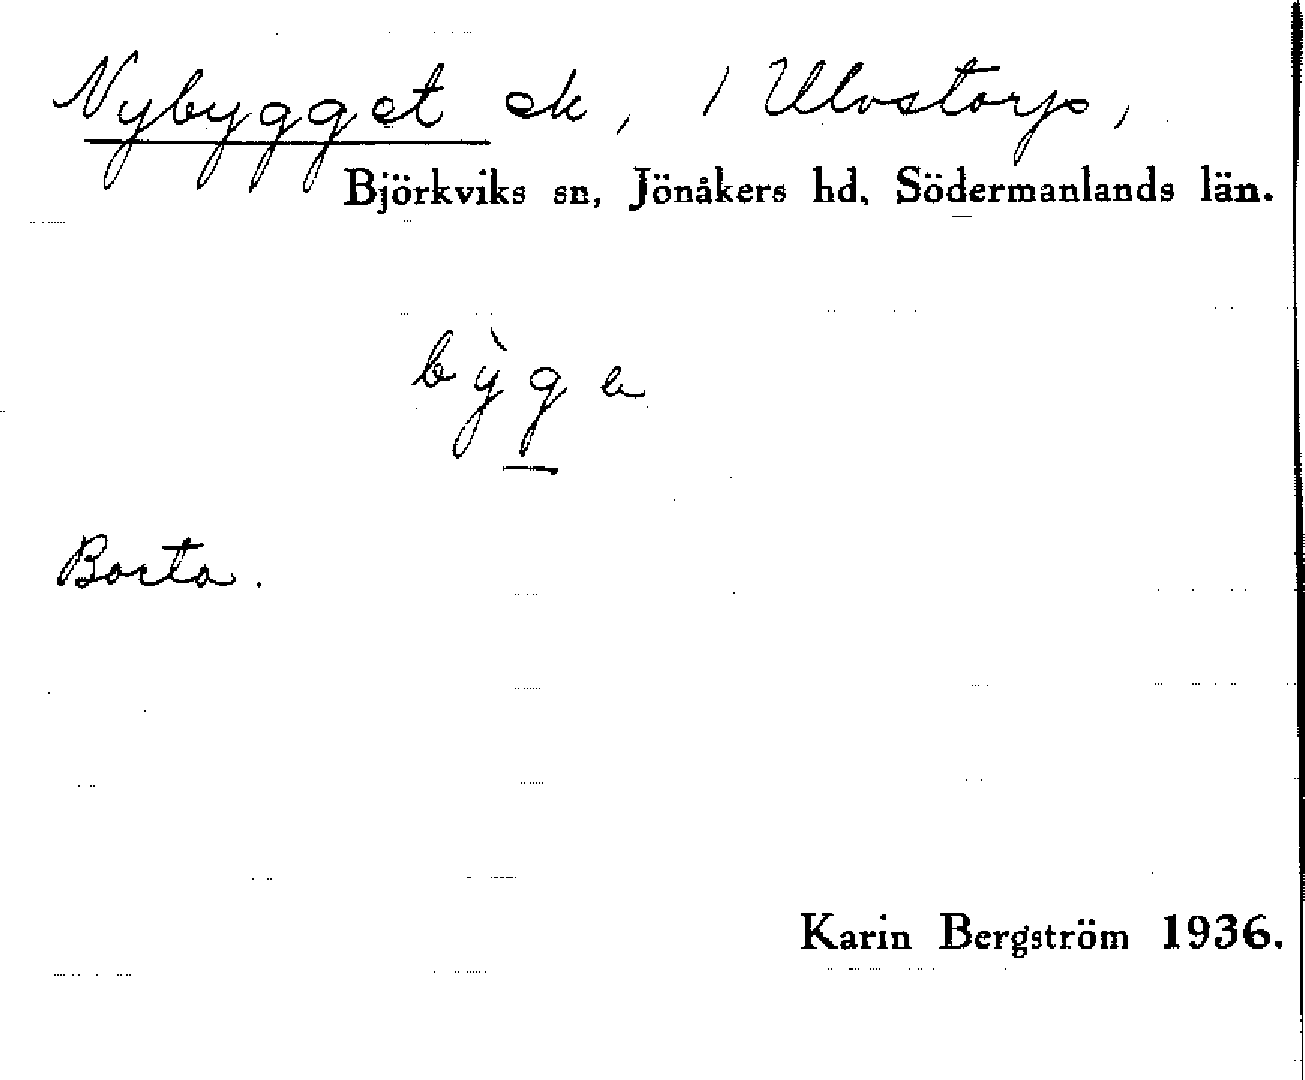 Nybygget sk, / Ulvstorp,
Björkviks sn, Jönåkers hd, Södermanlands län.
bỳgə
Borta.
Karin Bergström 1936.